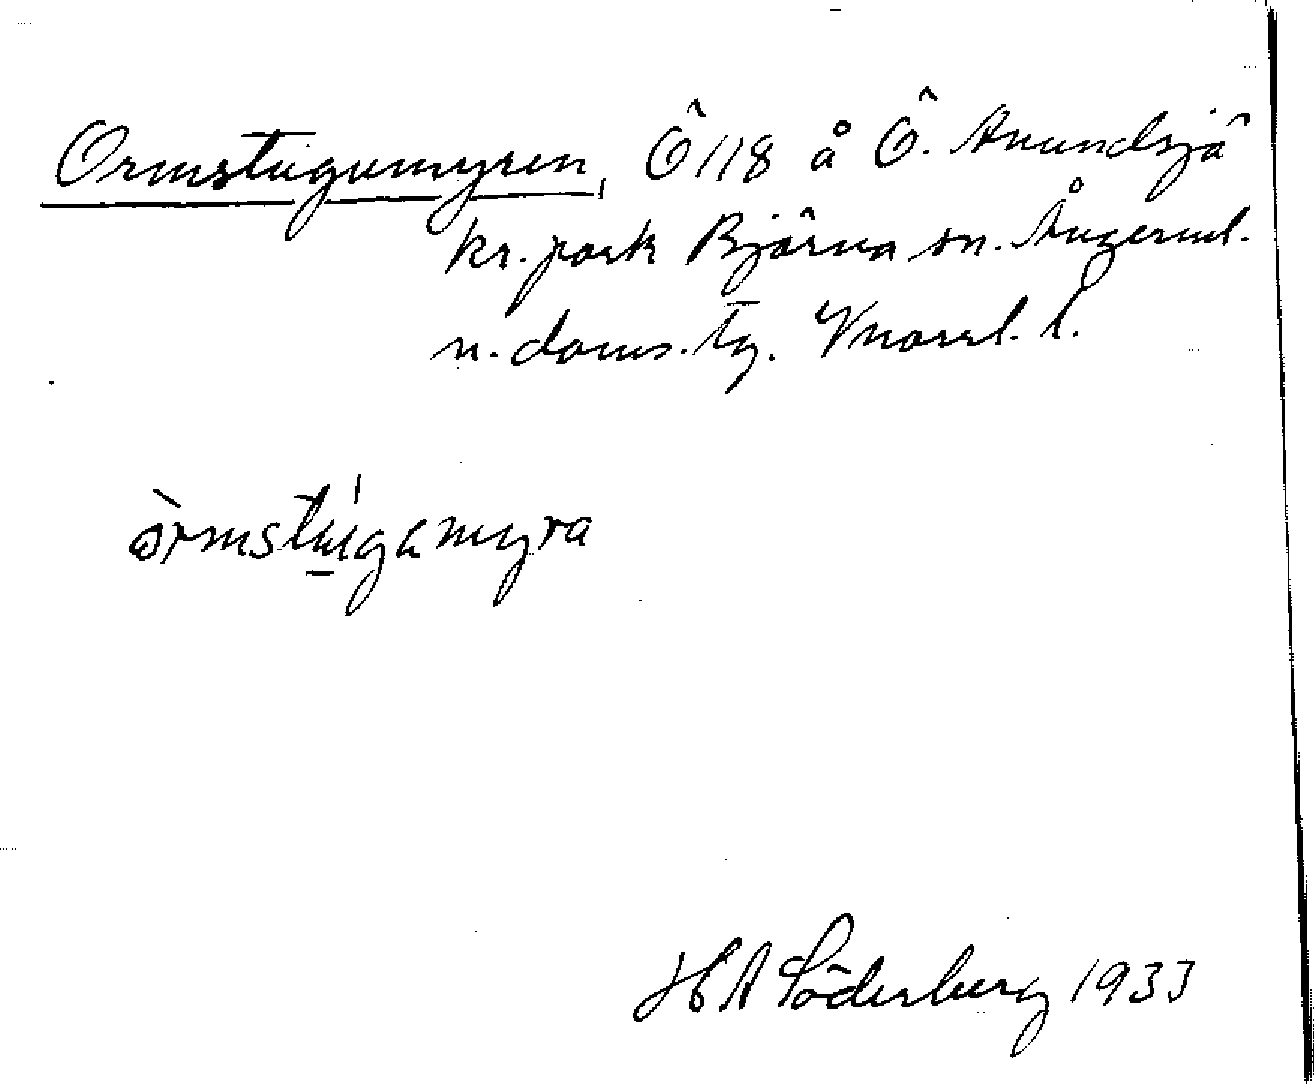 Ormstugumyren, Ö 118 å Ö. Anundsjö
kr. park Björna sn. Ångerml.
n. doms. tg. Vnorrl. l.
òrmstu̠gamyra
H A Söderberg 1933